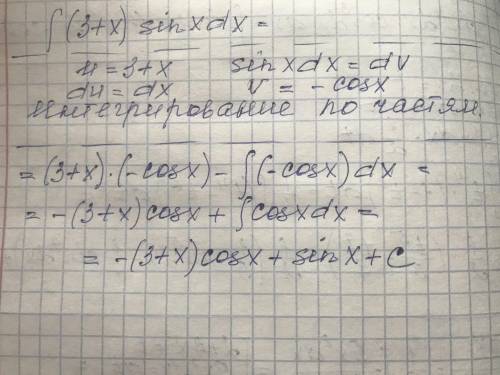 ∫(3+x) sinxdx =
u = 3+x   sinxdx = dv
du = dx   v = -cosx
интегрирование по частям.
= (3+x)·(-cosx) - ∫(-cosx)dx =
= -(3+x)cosx + ∫cosxdx =
= -(3+x)cosx + sinx + C